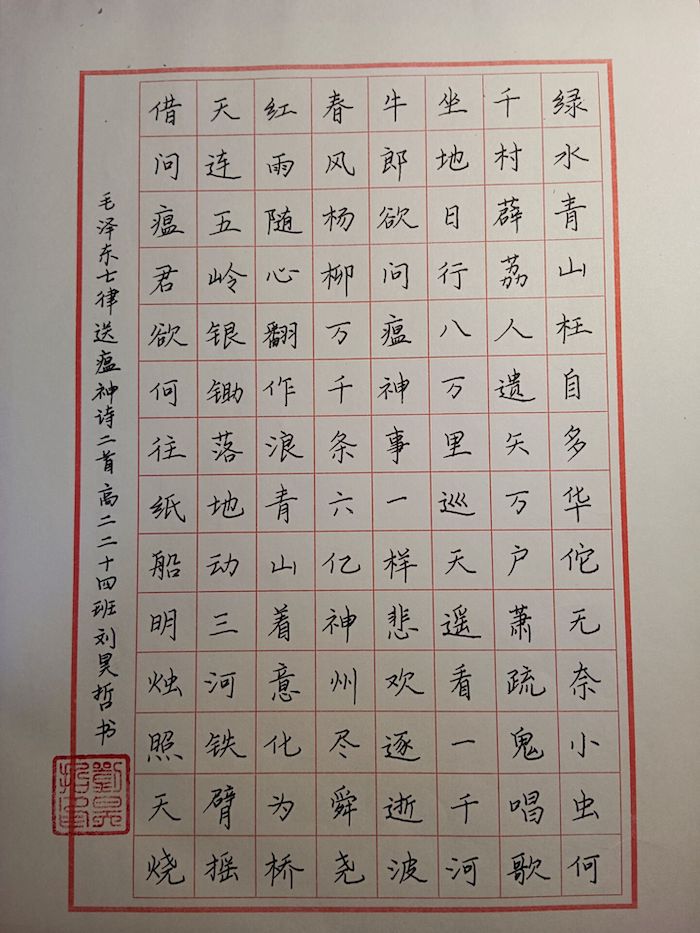 绿水青山枉自多华佗无奈小虫何
千村薜荔人遗矢万户萧疏鬼唱歌
坐地日行八万里巡天遥看一千河
牛郎欲问瘟神事一样悲欢逐逝波
春风杨柳万千条六亿神州尽舜尧
红雨随心翻作浪青山着意化为桥
天连五岭银锄落地动三河铁臂摇
借问瘟君欲何往纸船明烛照天烧
毛泽东七律送瘟神诗二首高二二十四班刘昊哲书